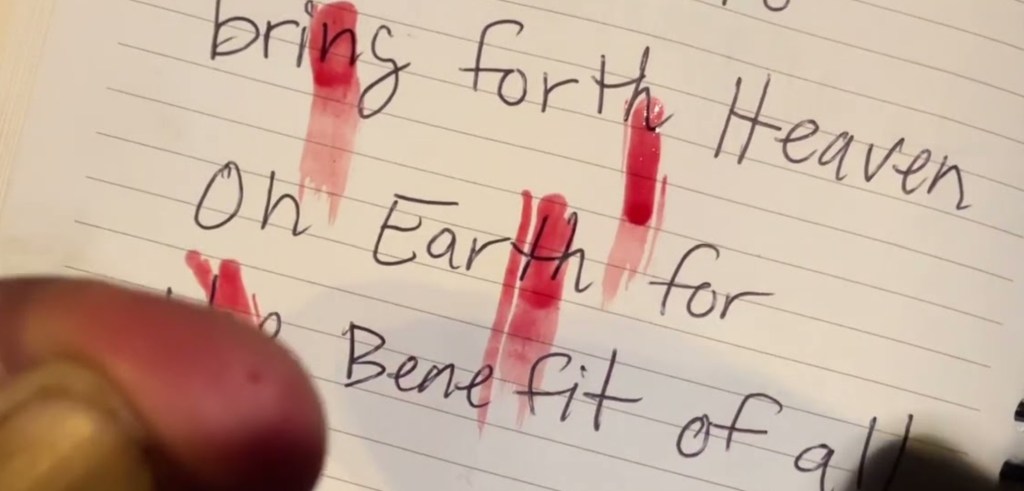 bring forth Heaven
On Earth for
the Benefit of all